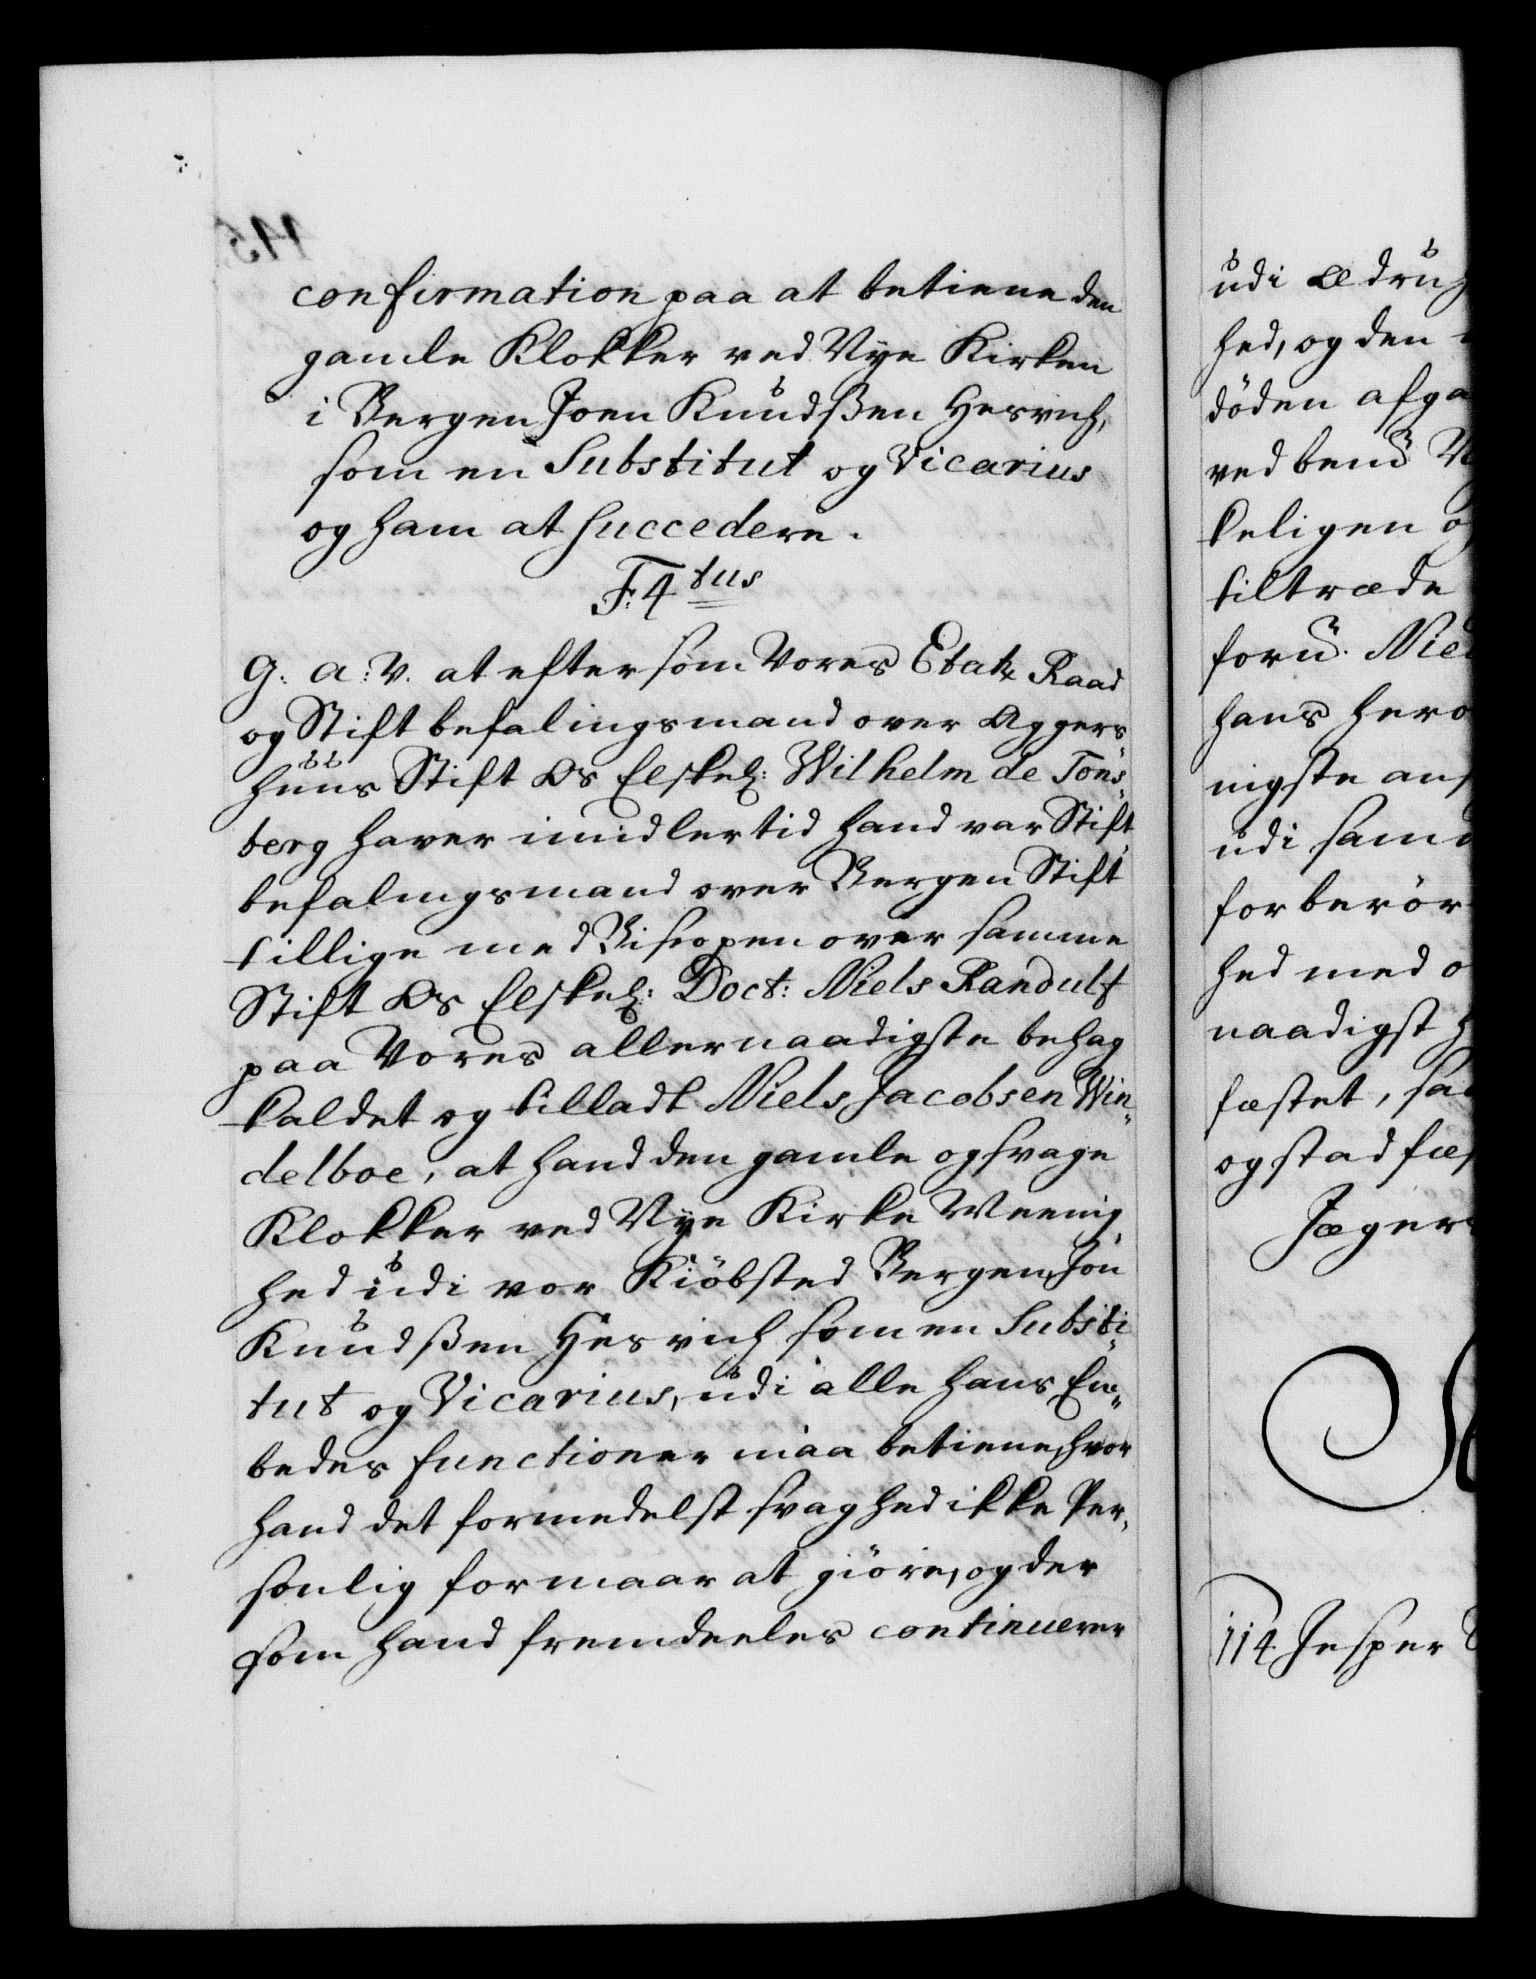 confirmation paa at betiene den
gamle Klokker ved Nye Kirken
i Bergen Joen Knudßen Hesvich,
som en Substitut og Vicarius
og ham at succedere.
F: 4tus
G. A: V. at eftersom Vores Etatz Raad
og Stiftbefalingsmand over Aggers-
huus Stift Os Elskel: Wilhelm de Tøns-
berg haver imidlertid hand var Stift-
befalingsmand over Bergen Stift
tillige med Bispen over samme
Stift Os Elskel: Doct: Niels Randulf
paa Vores allernaadigste behag
kaldet og tilladt Niels Jacobsen Win-
delboe, at hand den gamle og svage
Klokker ved Nye Kirke Meenig-
hed udi vor Kiöbsted Bergen, Jon
Knudßen Hesvich som en Substi-
tut og Vicarius, udi alle hans Em-
bedes functioner maa betiene, hvor
hand det formedelst svaghed ikke Per-
sonlig formaar at giöre, og der
som hand fremdeeles continuerer
udi ædru
hed, og den
döden afga
ved bem
keligen
tiltræde
fors. Niel
hans her
nigste an
udi sam
for berör
hed med
naadigst
fæstet, sa
og stadfæ
Jæger
114. Jesper